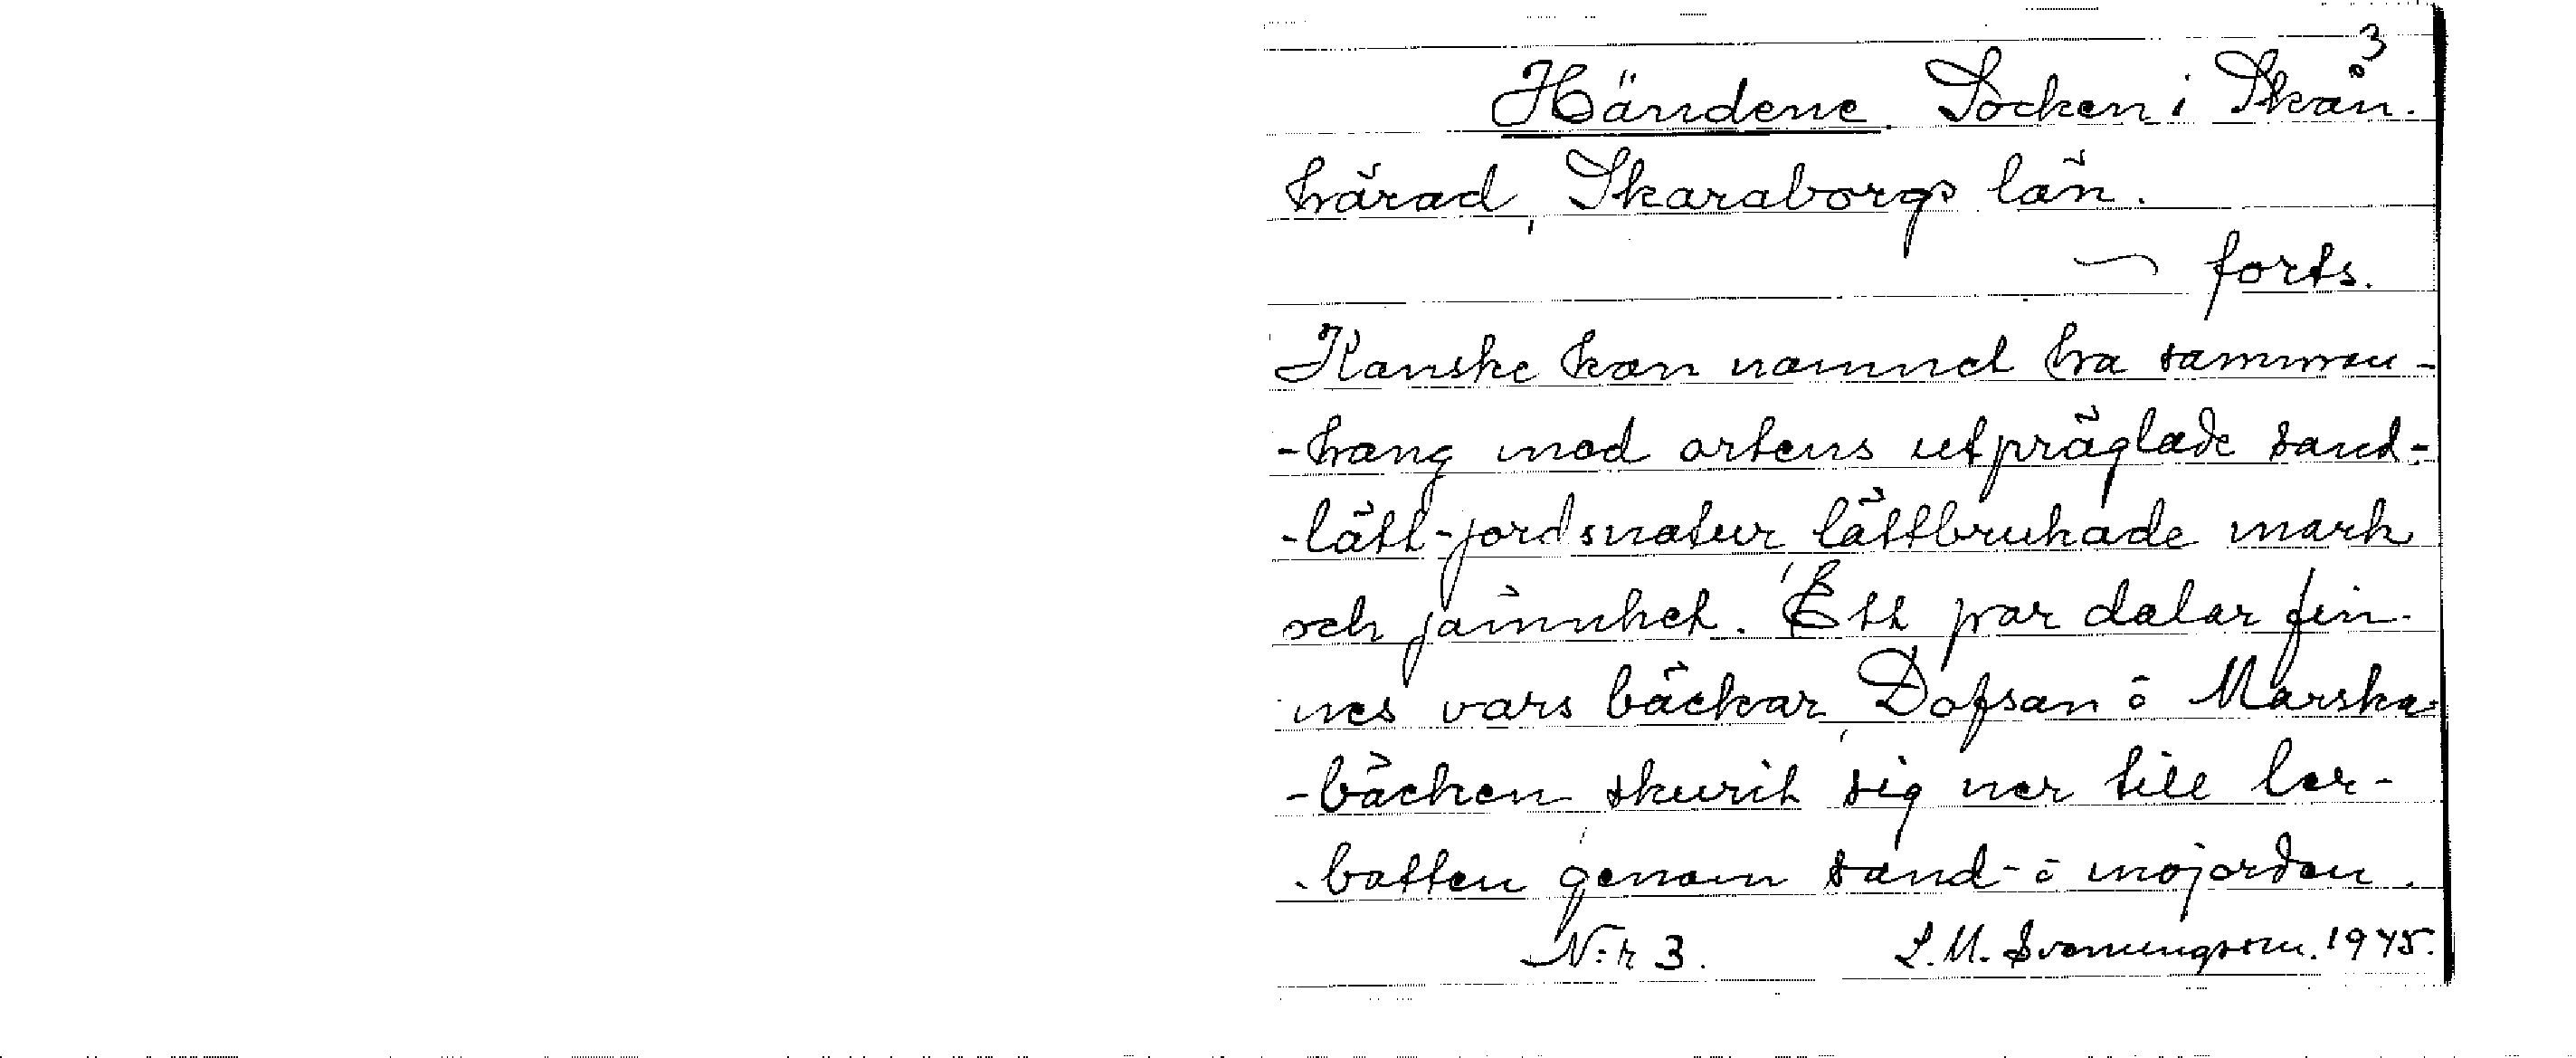 3
Händene. Socken i Skån.
härad, Skaraborgs län.
~ forts.
Kanske kan namnet ha samman-
-hang med ortens utpräglade sand-
-lätt-jordsnatur, lättbrukade mark
och jämnhet. Ett par dalar fin-
nes vars bäckar, Dofsan ō Marska-
-bäcken skurit sig ner till ler-
-botten genom sand- ō mojorden.
N:r 3. L.M. Svenungsson. 1945.